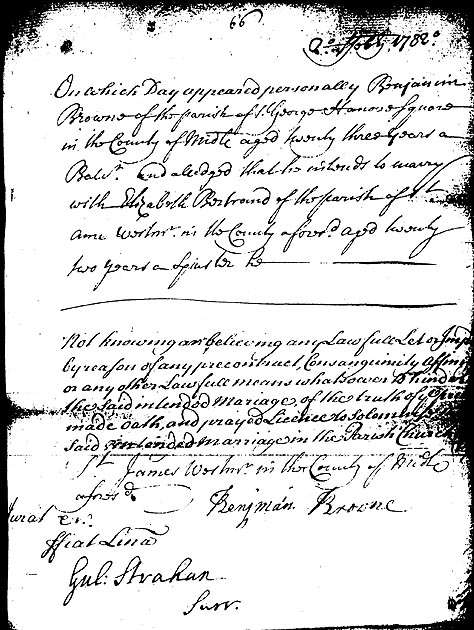 66
1782
On which Day appeared personally Benjamin
Browne of the parish of St. George Hanover Square
in the County of Midlx aged twenty three years a
Batchr. and alledged that he intends to marry
with Elizabeth Bertrand of the parish of St
Ann Westmr. in the County afores.d aged twenty
two years a Spinster he
Not knowing or believing any Lawfull Let or Imp
by reason of any precontract Consanguinity Affini
or any other Lawfull means whatsoever to hinder
the said intended Mariage, of the truth of
made Oath, and prayed Licence to Solemnize
said intended Marriage in the Parish Church
St James Westmr. in the County of Midlx
afores.d
Benjman Browne
Jurat
Gul: Strahan
Surr.